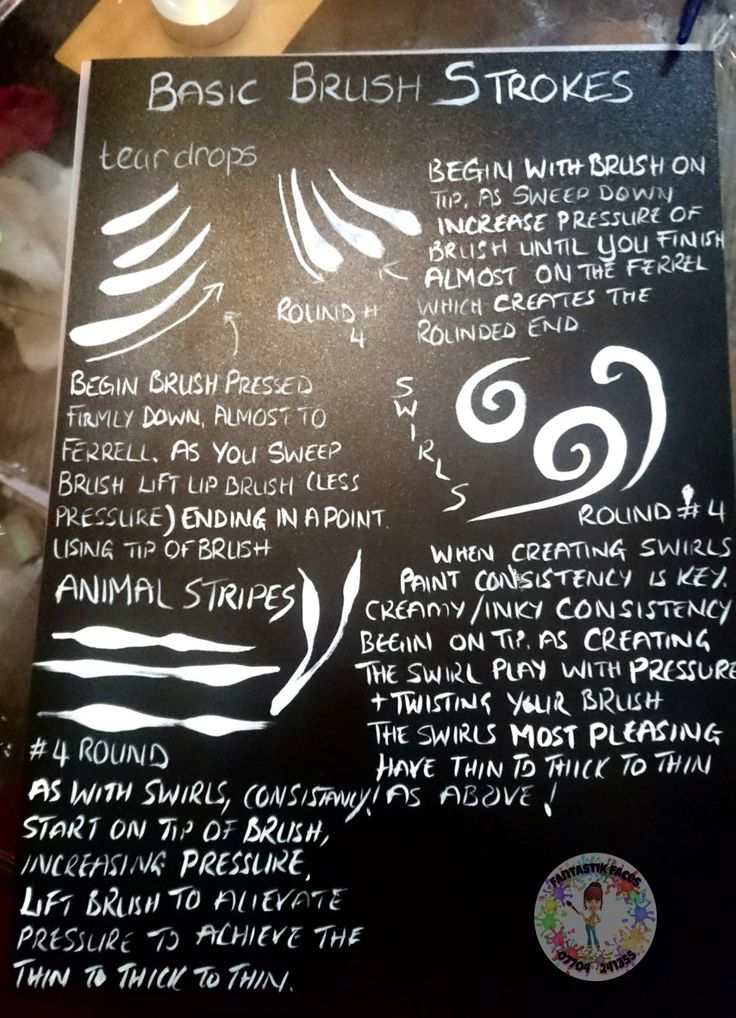 BASIC BRUSH STROKES
teardrops
BEGIN WITH BRUSH ON
TIP. AS SWEEP DOWN
INCREASE PRESSURE OF
BRUSH UNTIL YOU FINISH
ALMOST ON THE FERREL
WHICH CREATES THE
ROUNDED END
ROUND #
4
BEGIN BRUSH PRESSED
FIRMLY DOWN, ALMOST TO
FERRELL. AS YOU SWEEP
BRUSH LIFT UP BRUSH (LESS
PRESSURE) ENDING IN A POINT.
USING TIP OF BRUSH
SWIRLS
ROUND #4
WHEN CREATING SWIRLS
PAINT CONSISTENCY IS KEY.
CREAMY/INKY CONSISTENCY
BEGIN ON TIP. AS CREATING
THE SWIRL PLAY WITH PRESSURE
+ TWISTING YOUR BRUSH
THE SWIRLS MOST PLEASING
HAVE THIN TO THICK TO THIN
AS ABOVE!
ANIMAL STRIPES
#4 ROUND
AS WITH SWIRLS, CONSISTANCY!
START ON TIP OF BRUSH,
INCREASING PRESSURE,
LIFT BRUSH TO ALIEVATE
PRESSURE TO ACHIEVE THE
THIN TO THICK TO THIN.
FANTASTIK FACES
07704 241355